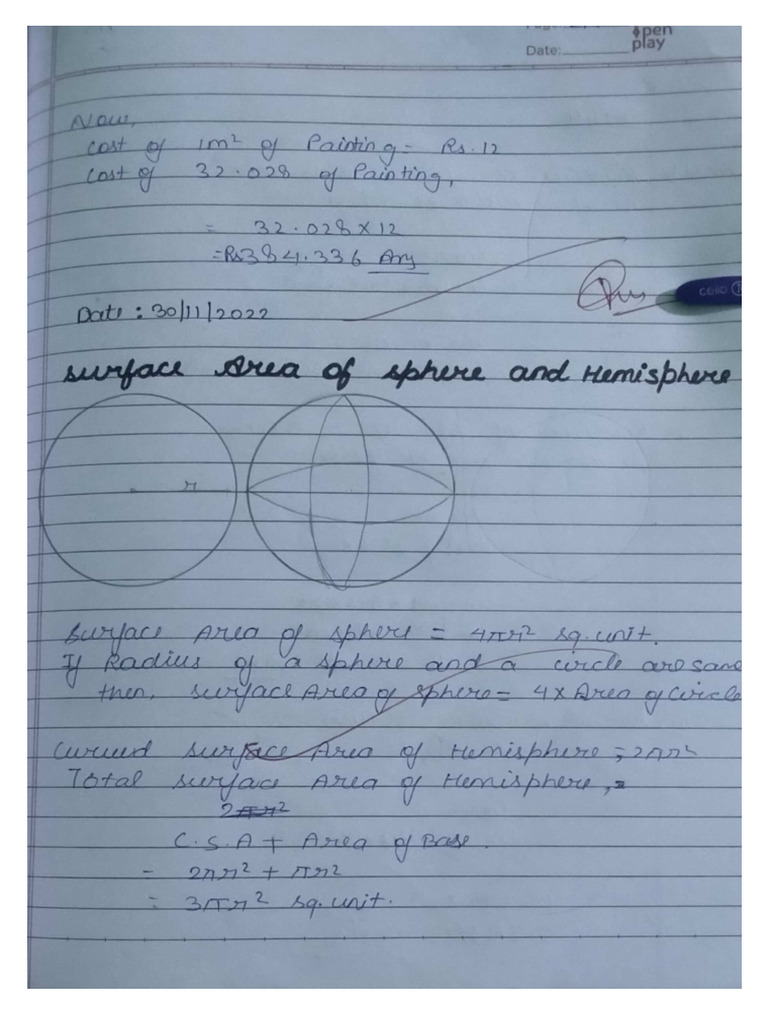 open
play
Date:
Now,
Cost of 1m² of Painting = Rs. 12
Cost of 32.028 of Painting,
= 32.028 × 12
= Rs 384.336 Ans
cello
Date : 30/11/2022
Surface Area of sphere and Hemisphere
r
Surface Area of sphere = 4πr² sq. unit.
If Radius of a sphere and a circle are same
then, surface Area of sphere = 4 × Area of circle
Curved surface Area of Hemisphere, = 2πr²
Total surface Area of Hemisphere, =
2πr²
C.S.A + Area of Base.
= 2πr² + πr²
= 3πr² sq. unit.